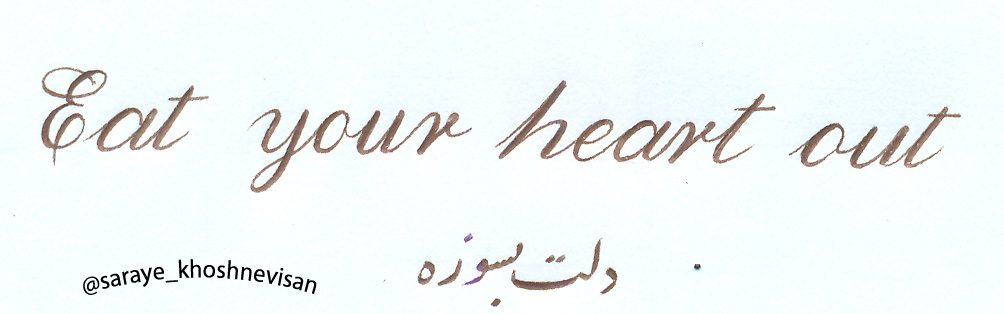 Eat your heart out
دلت بسوزه
@saraye_khoshnevisan